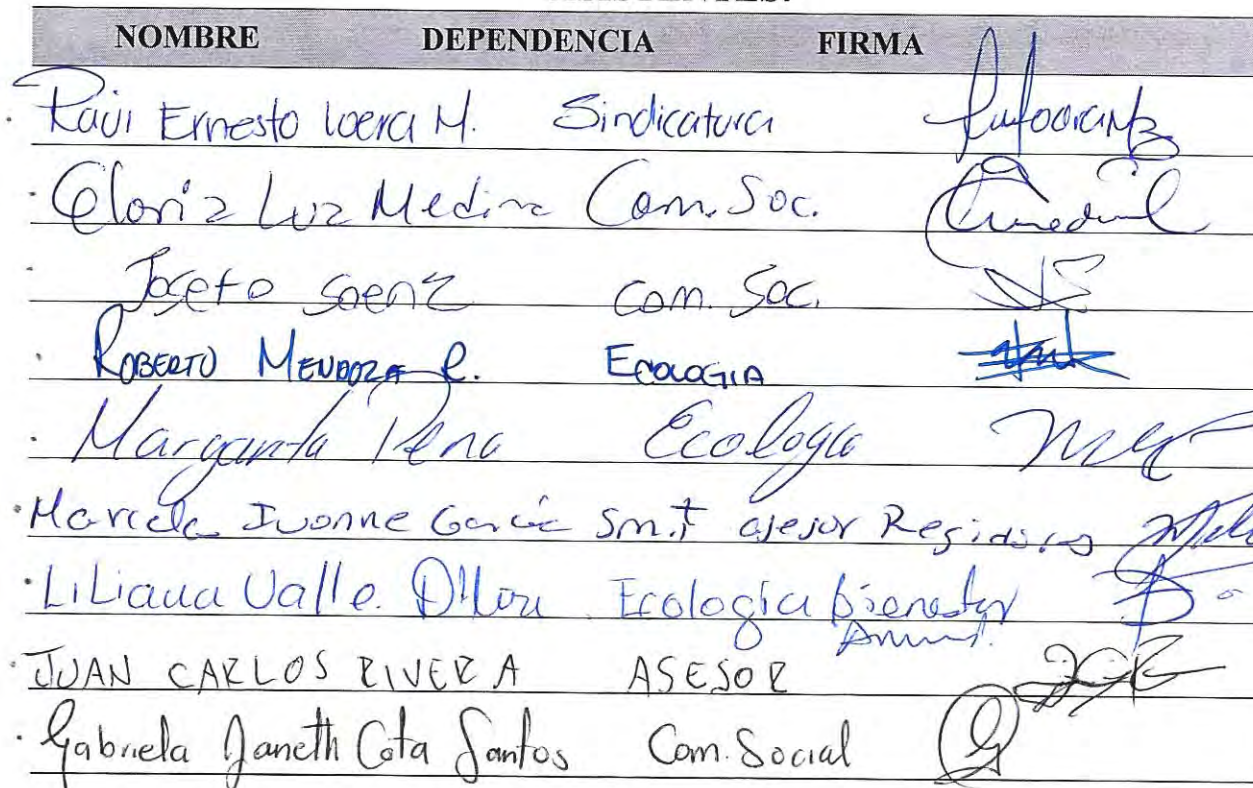 NOMBRE DEPENDENCIA FIRMA
Raúl Ernesto Loera M. Sindicatura
Gloria Luz Medina Com. Soc.
Josefo Saenz Com. Soc.
ROBERTO MENDOZA R. ECOLOGIA
Margarita Pena Ecologia
Marcela Ivonne García Smit asesor Regidores
Liliana Valle Ecologia bienestar
JUAN CARLOS RIVERA ASESOR
Gabriela Janeth Cota Santos Com. Social